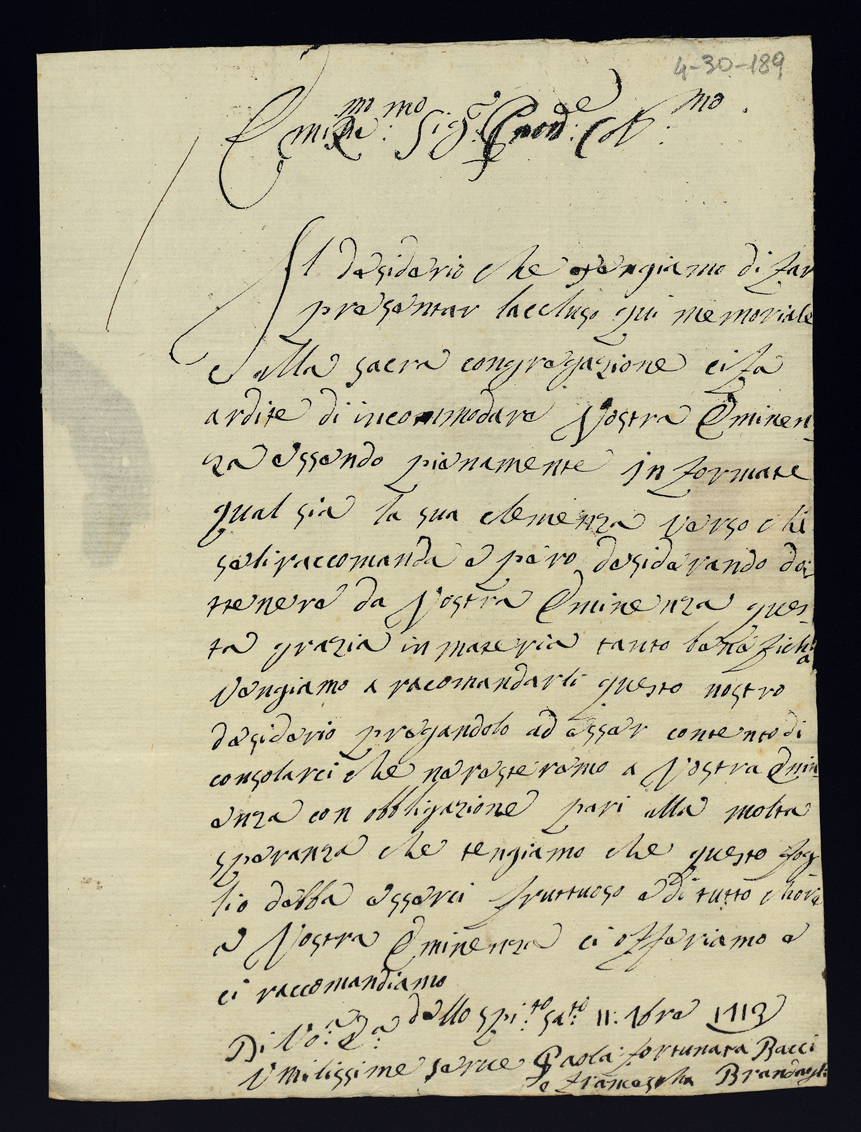 4-30-189
Emin.mo R.mo Sig.re Pron.e Col.mo
Il desiderio che tengiamo di far
presentar laccluso qui memoriale
e alla sacra congregazione ci fa
ardite di incommodare Vostra Eminen-
za essendo pienamente informate
qual sia la sua clemenza verso chi
seli raccomanda e pero desiderando do-
ttenere da Vostra Eminenza ques-
ta grazia in materia tanto beneficha
vengiamo a racomandarli questo nostro
desiderio pregandolo ad esser contento di
consolarci che neresteremo a Vostra Emin-
enza con obbligazione pari alla molta
speranza che tengiamo che questo fog
lio debba esserci fruttuoso e di tutto chore
a Vostra Eminenza ci offeriamo e
ci raccomandiamo
Di Vo.a E.a dallo Spi.to Sa.to 11: 9bre 1713
Umilissime serve Paola fortunata Bacci
e francescha Brandagli